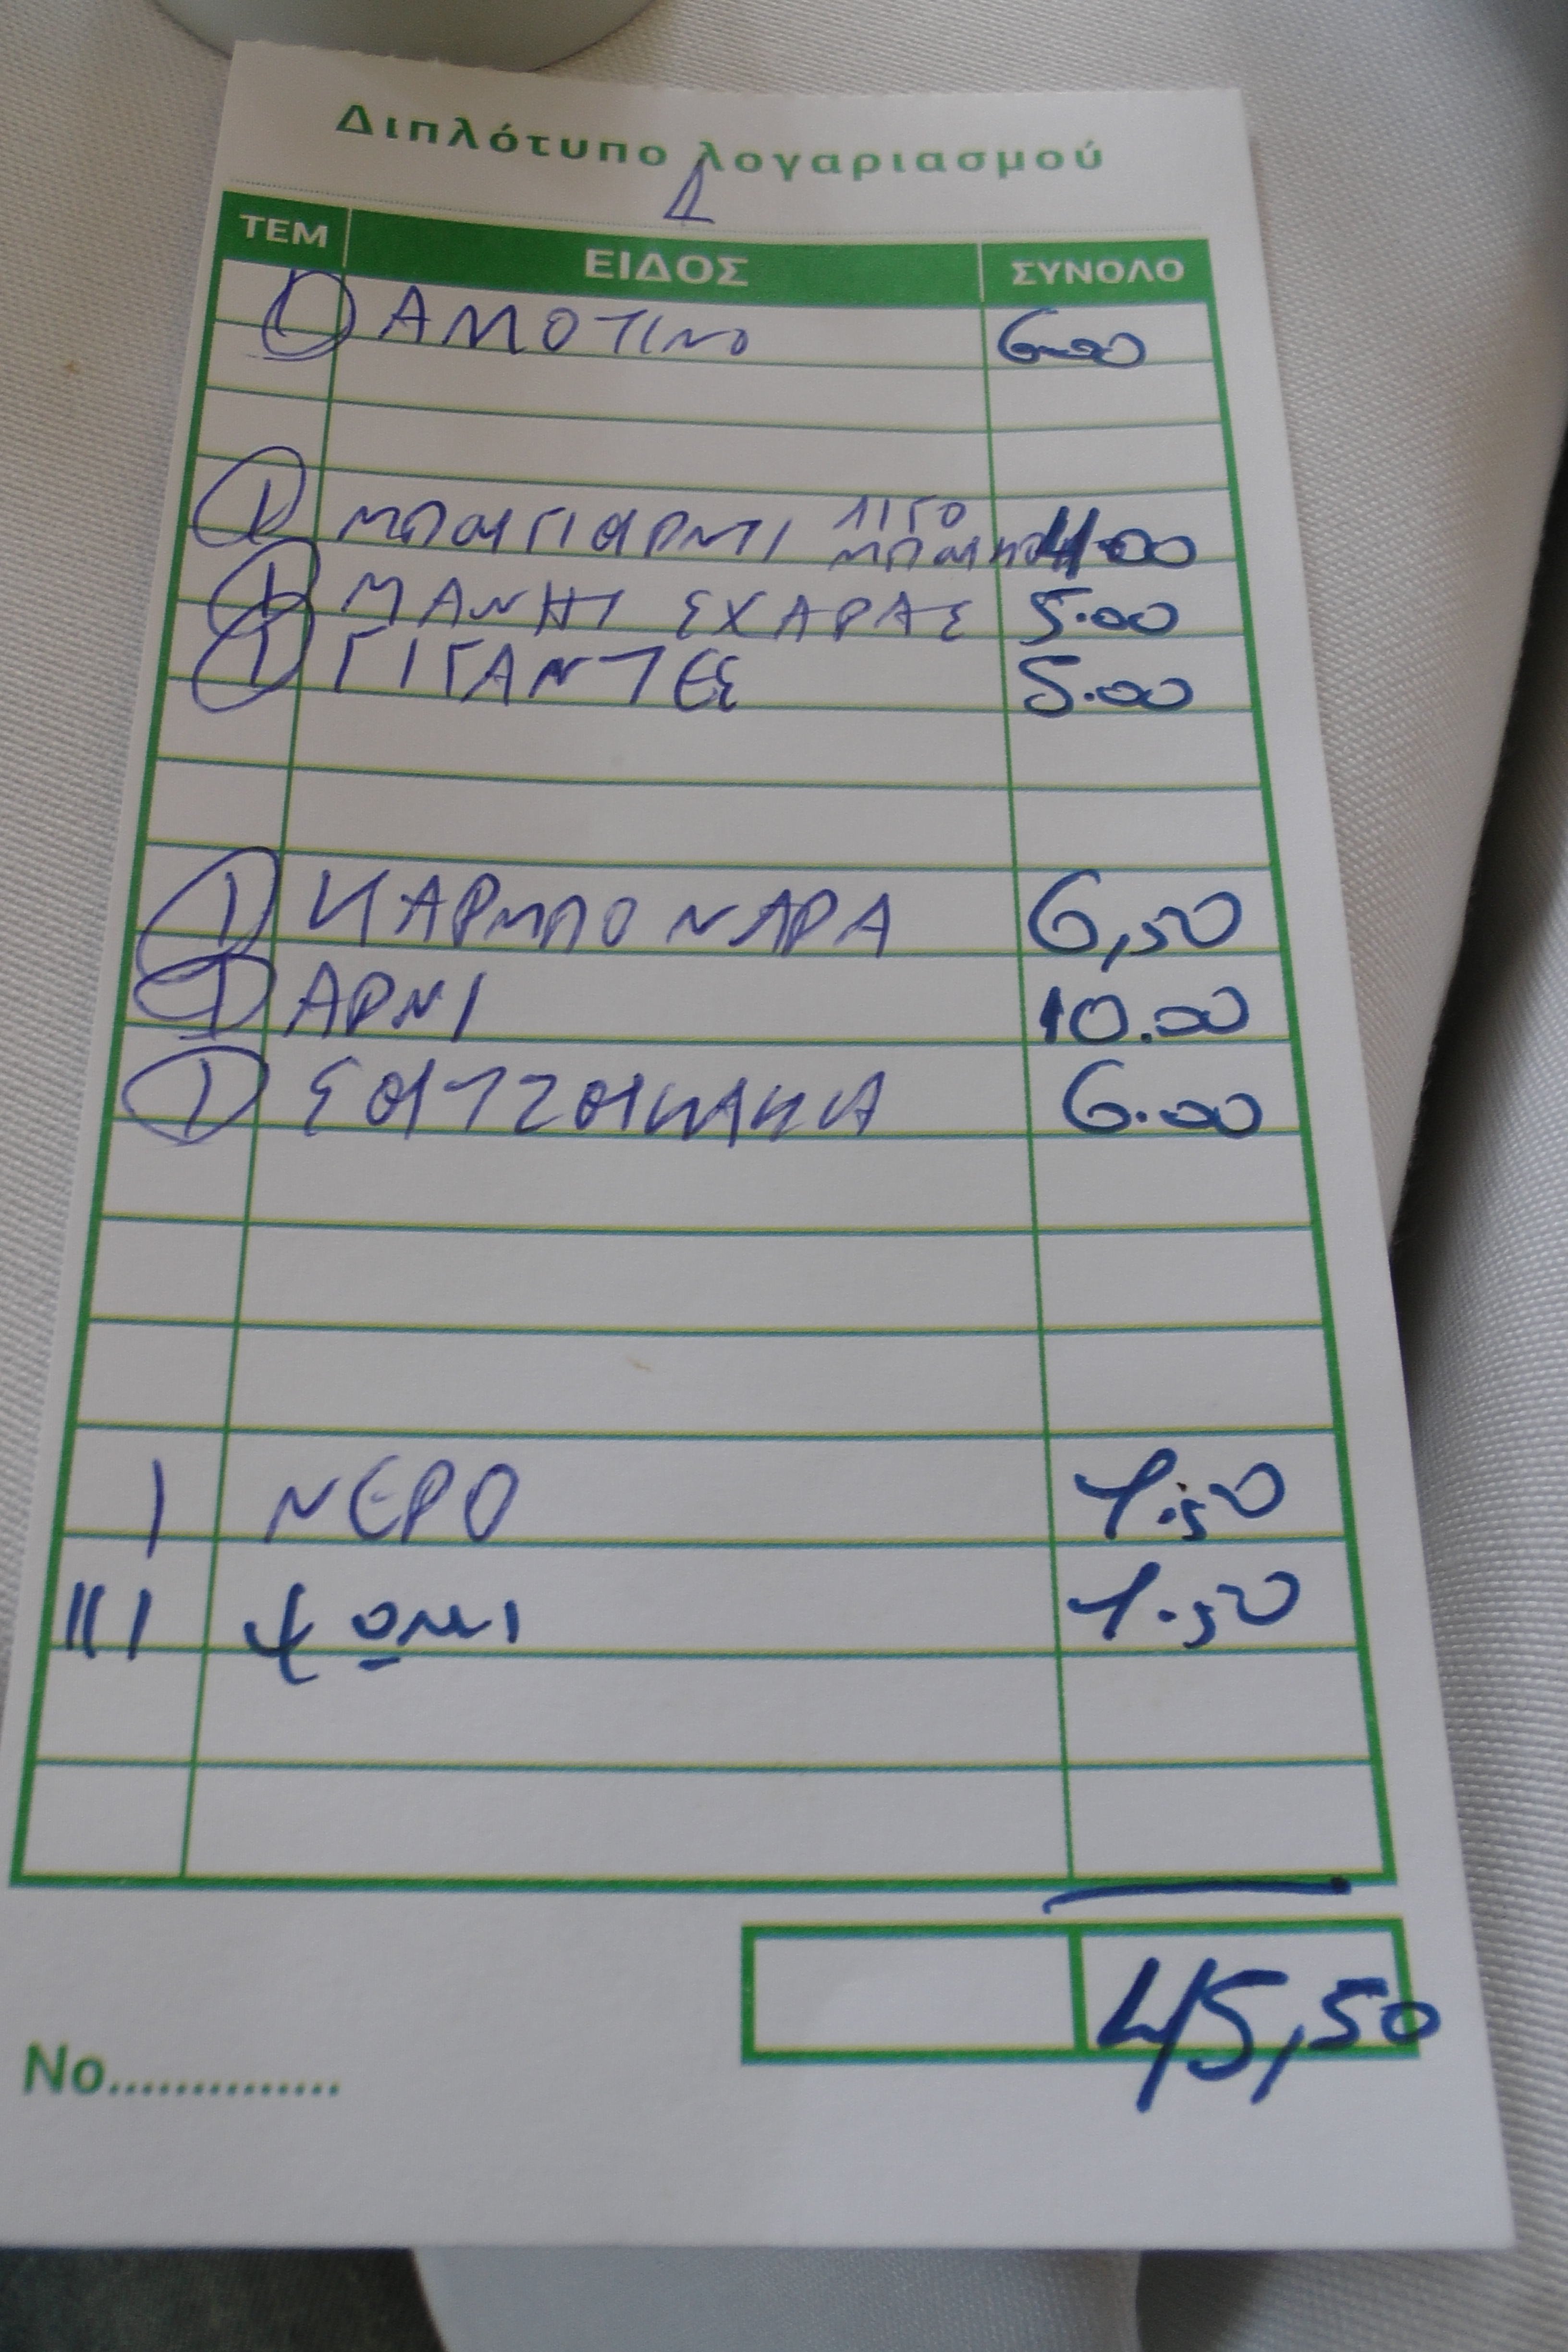 Διπλότυπο λογαριασμού
Δ
ΤΕΜ ΕΙΔΟΣ ΣΥΝΟΛΟ
1 ΑΜΟΤΙΝΟ 6.00
1 ΜΠΟΥΓΙΟΥΡΝΤΙ ΛΙΓΟ 4.00
1 ΜΑΝΙΤ ΣΧΑΡΑΣ 5.00
1 ΓΙΓΑΝΤΕΣ 5.00
1 ΚΑΡΜΠΟΝΑΡΑ 6,50
1 ΑΡΝΙ 10.00
1 ΣΟΥΤΖΟΥΚΑΚΙΑ 6.00
Ι ΝΕΡΟ 1.50
ΙΙΙ ΨΩΜΙ 1.50
45,50
Νο..............